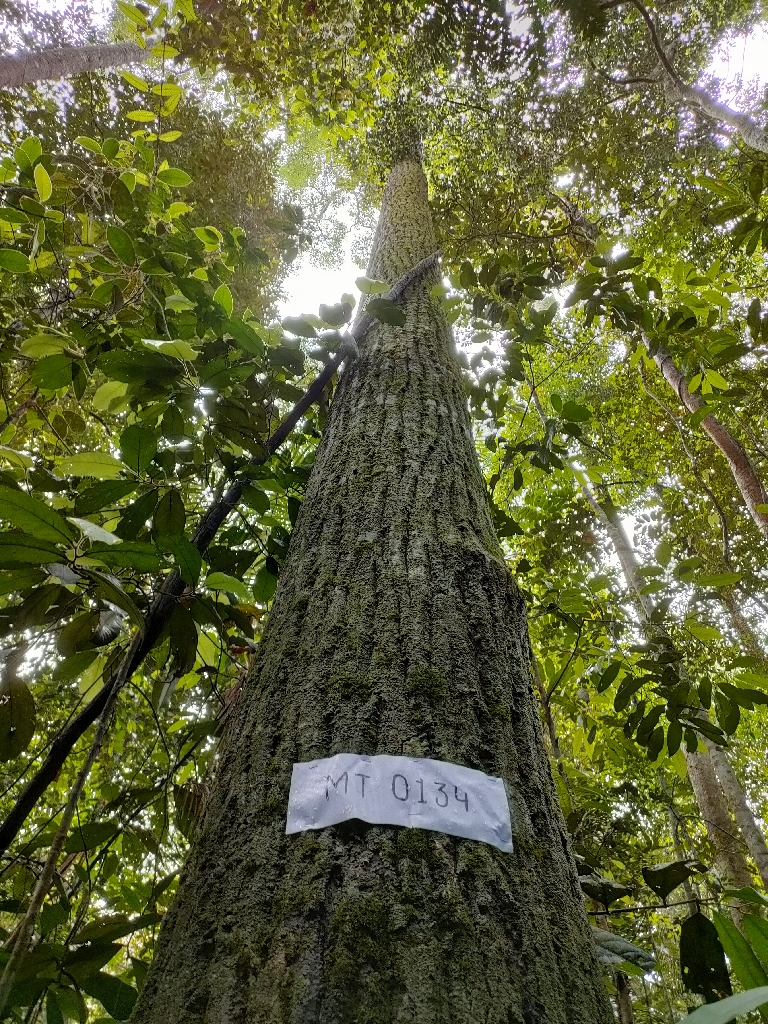 MT 0134